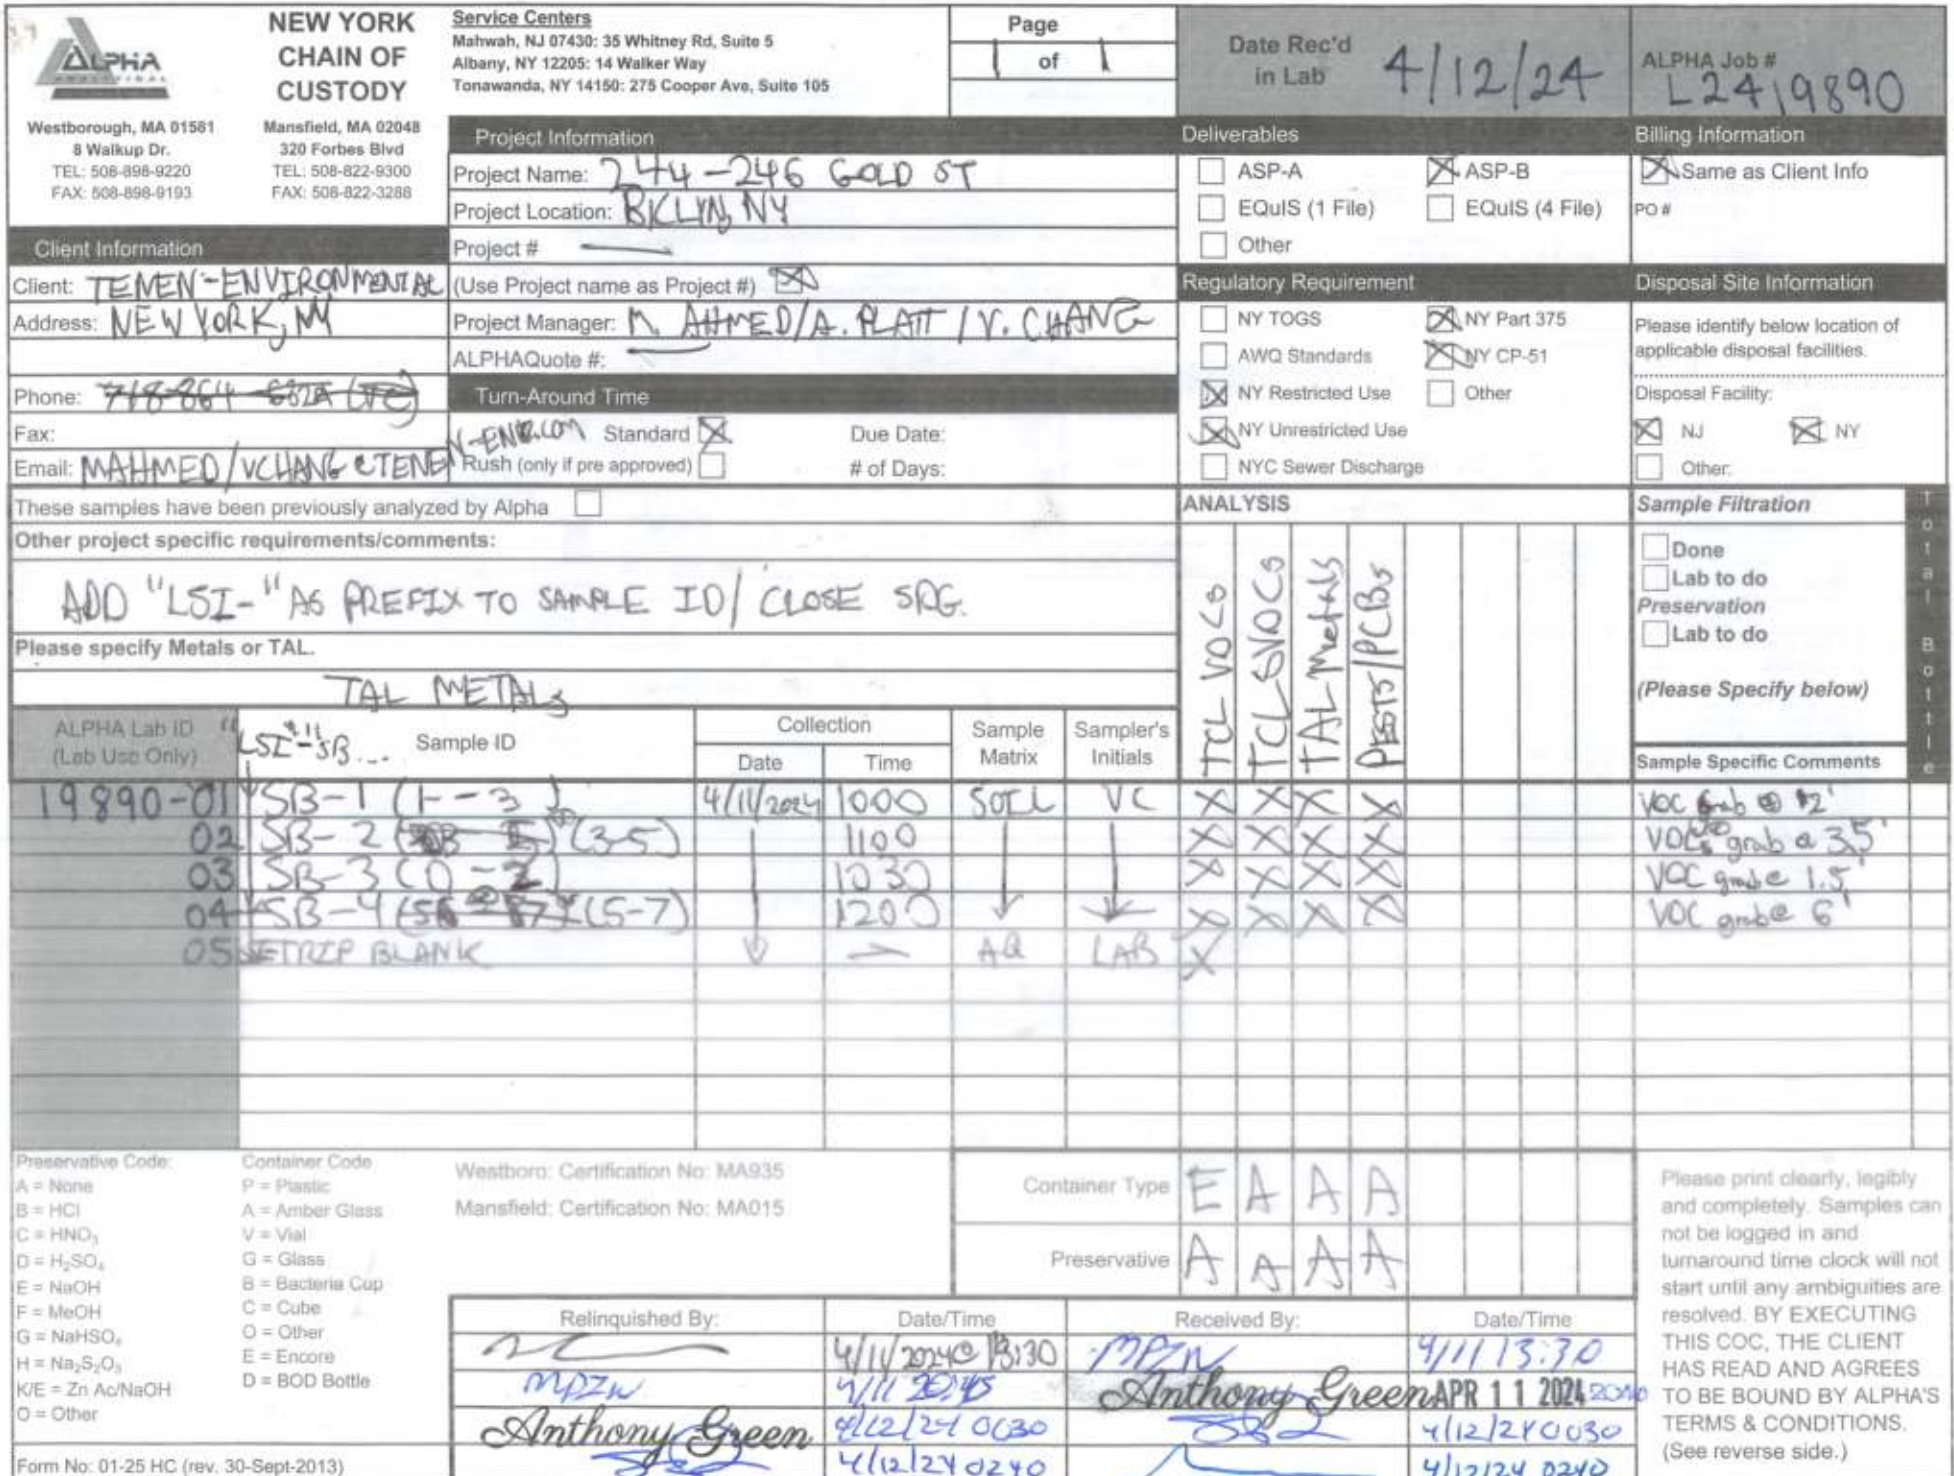 ALPHA
ANALYTICAL
NEW YORK
CHAIN OF
CUSTODY
Westborough, MA 01581
8 Walkup Dr.
TEL: 508-898-9220
FAX: 508-898-9193
Mansfield, MA 02048
320 Forbes Blvd
TEL: 508-822-9300
FAX: 508-822-3288
Service Centers
Mahwah, NJ 07430: 35 Whitney Rd, Suite 5
Albany, NY 12205: 14 Walker Way
Tonawanda, NY 14150: 275 Cooper Ave, Suite 105
Page
1 of 1
Date Rec'd
in Lab
4/12/24
ALPHA Job #
L2419890
Client Information
Client: TENEN-ENVIRONMENTAL
Address: NEW YORK, NY
Phone:
Fax:
Email: MAHMED/VCHANG@TENEN-ENV.COM
Project Information
Project Name: 244-246 GOLD ST
Project Location: BKLYN, NY
Project #
(Use Project name as Project #) X
Project Manager: M. AHMED/A. PLATT/V. CHANG
ALPHAQuote #:
Turn-Around Time
Standard X Due Date:
Rush (only if pre approved) # of Days:
Deliverables
ASP-A X ASP-B
EQuIS (1 File) EQuIS (4 File)
Other
Regulatory Requirement
NY TOGS X NY Part 375
AWQ Standards X NY CP-51
X NY Restricted Use Other
X NY Unrestricted Use
NYC Sewer Discharge
Billing Information
X Same as Client Info
PO #
Disposal Site Information
Please identify below location of
applicable disposal facilities.
Disposal Facility:
X NJ X NY
Other:
These samples have been previously analyzed by Alpha
Other project specific requirements/comments:
ADD "LSI-" AS PREFIX TO SAMPLE ID/ CLOSE SDG.
Please specify Metals or TAL.
TAL METALS
ANALYSIS
TCL VOCs
TCL SVOCs
TAL Metals
PESTS/PCBs
Sample Filtration
Done
Lab to do
Preservation
Lab to do
(Please Specify below)
Total Bottle
ALPHA Lab ID
(Lab Use Only)
"LSI-"SB...
Sample ID
Collection
Date Time
Sample
Matrix
Sampler's
Initials
Sample Specific Comments
19890-01 SB-1 (1-3) 4/11/2024 1000 SOIL VC X X X X VOC grab @ 2'
02 SB-2 (3-5) 1100 X X X X VOCs grab @ 3.5'
03 SB-3 (0-2) 1030 X X X X VOC grab @ 1.5'
04 SB-4 (5-7) 1200 X X X X VOC grab @ 6'
05 TRIP BLANK — AQ LAB X
Preservative Code:
A = None
B = HCl
C = HNO3
D = H2SO4
E = NaOH
F = MeOH
G = NaHSO4
H = Na2S2O3
K/E = Zn Ac/NaOH
O = Other
Container Code
P = Plastic
A = Amber Glass
V = Vial
G = Glass
B = Bacteria Cup
C = Cube
O = Other
E = Encore
D = BOD Bottle
Westboro: Certification No: MA935
Mansfield: Certification No: MA015
Container Type E A A A
Preservative A A A A
Relinquished By: Date/Time Received By: Date/Time
4/11/2024 @ 13:30 4/11 13:30
4/11 20:45 Anthony Green APR 11 2024
Anthony Green 4/12/24 0030 4/12/24 0030
4/12/24 0240 4/12/24 0240
Please print clearly, legibly
and completely. Samples can
not be logged in and
turnaround time clock will not
start until any ambiguities are
resolved. BY EXECUTING
THIS COC, THE CLIENT
HAS READ AND AGREES
TO BE BOUND BY ALPHA'S
TERMS & CONDITIONS.
(See reverse side.)
Form No: 01-25 HC (rev. 30-Sept-2013)